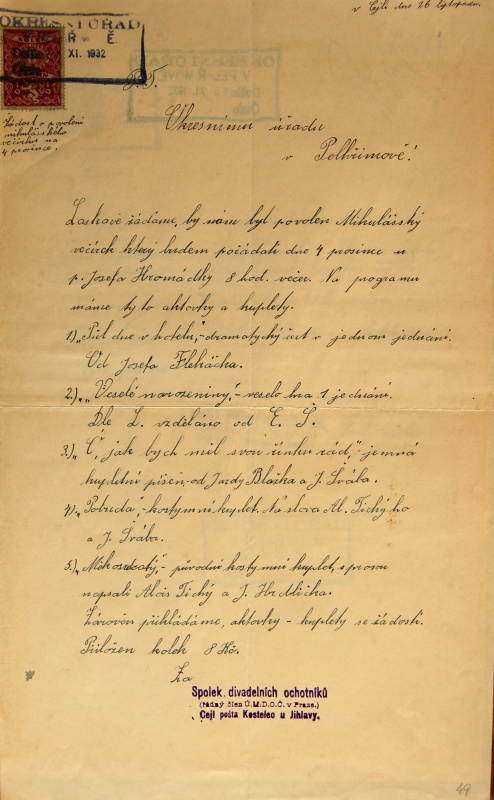 v Cejli dne 26 listopadu.
OKRESNÍ ÚŘAD
XI. 1932
P. T.
Žádost o povolení
mikulášského
večírku na
4 prosince.
Okresnímu úřadu
v Pelhřimově!
Laskavě žádáme, by nám byl povolen Mikulášský
večírek který budem pořádati dne 4 prosince u
p. Josefa Hromádky 8 hod. večer. Na programu
máme tyto aktovky a kuplety.
1.) „Půl dne v hotelu," - dramatický žert v jednom jednání.
Od Josefa
2.) „Veselé narozeniny," - veselo hra 1 jednání.
Dle L. vzděláno od E. Š.
3.) jak bych měl svou ženku rád," - jemná
kupletní píseň, od Jardy Blažka a J. Švába.
4) „Pobuda", - kostymní kuplet. Na slova Al. Tichý ho
a J. Švába.
5.) - původní kostymní kuplet, s prosou
napsali Alois Tichý a J. Hrdlička.
Zároveň přikládáme, aktovky - kuplety se žádostí.
Přiložen kolek 8 Kč.
Za
Spolek divadelních ochotníků
(řádný člen Ú.M.D.O.Č. v Praze.)
Cejl pošta Kostelec u Jihlavy.
49